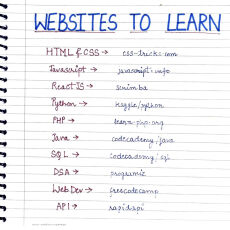 WEBSITES TO LEARN
HTML & CSS → css-tricks.com
Javascript → javascript.info
ReactJS → scrimba
Python → kaggle/python
PHP → learn-php.org
Java → codecademy/java
SQL → codecademy/sql
DSA → programiz
Web Dev → freecodecamp
API → rapidapi